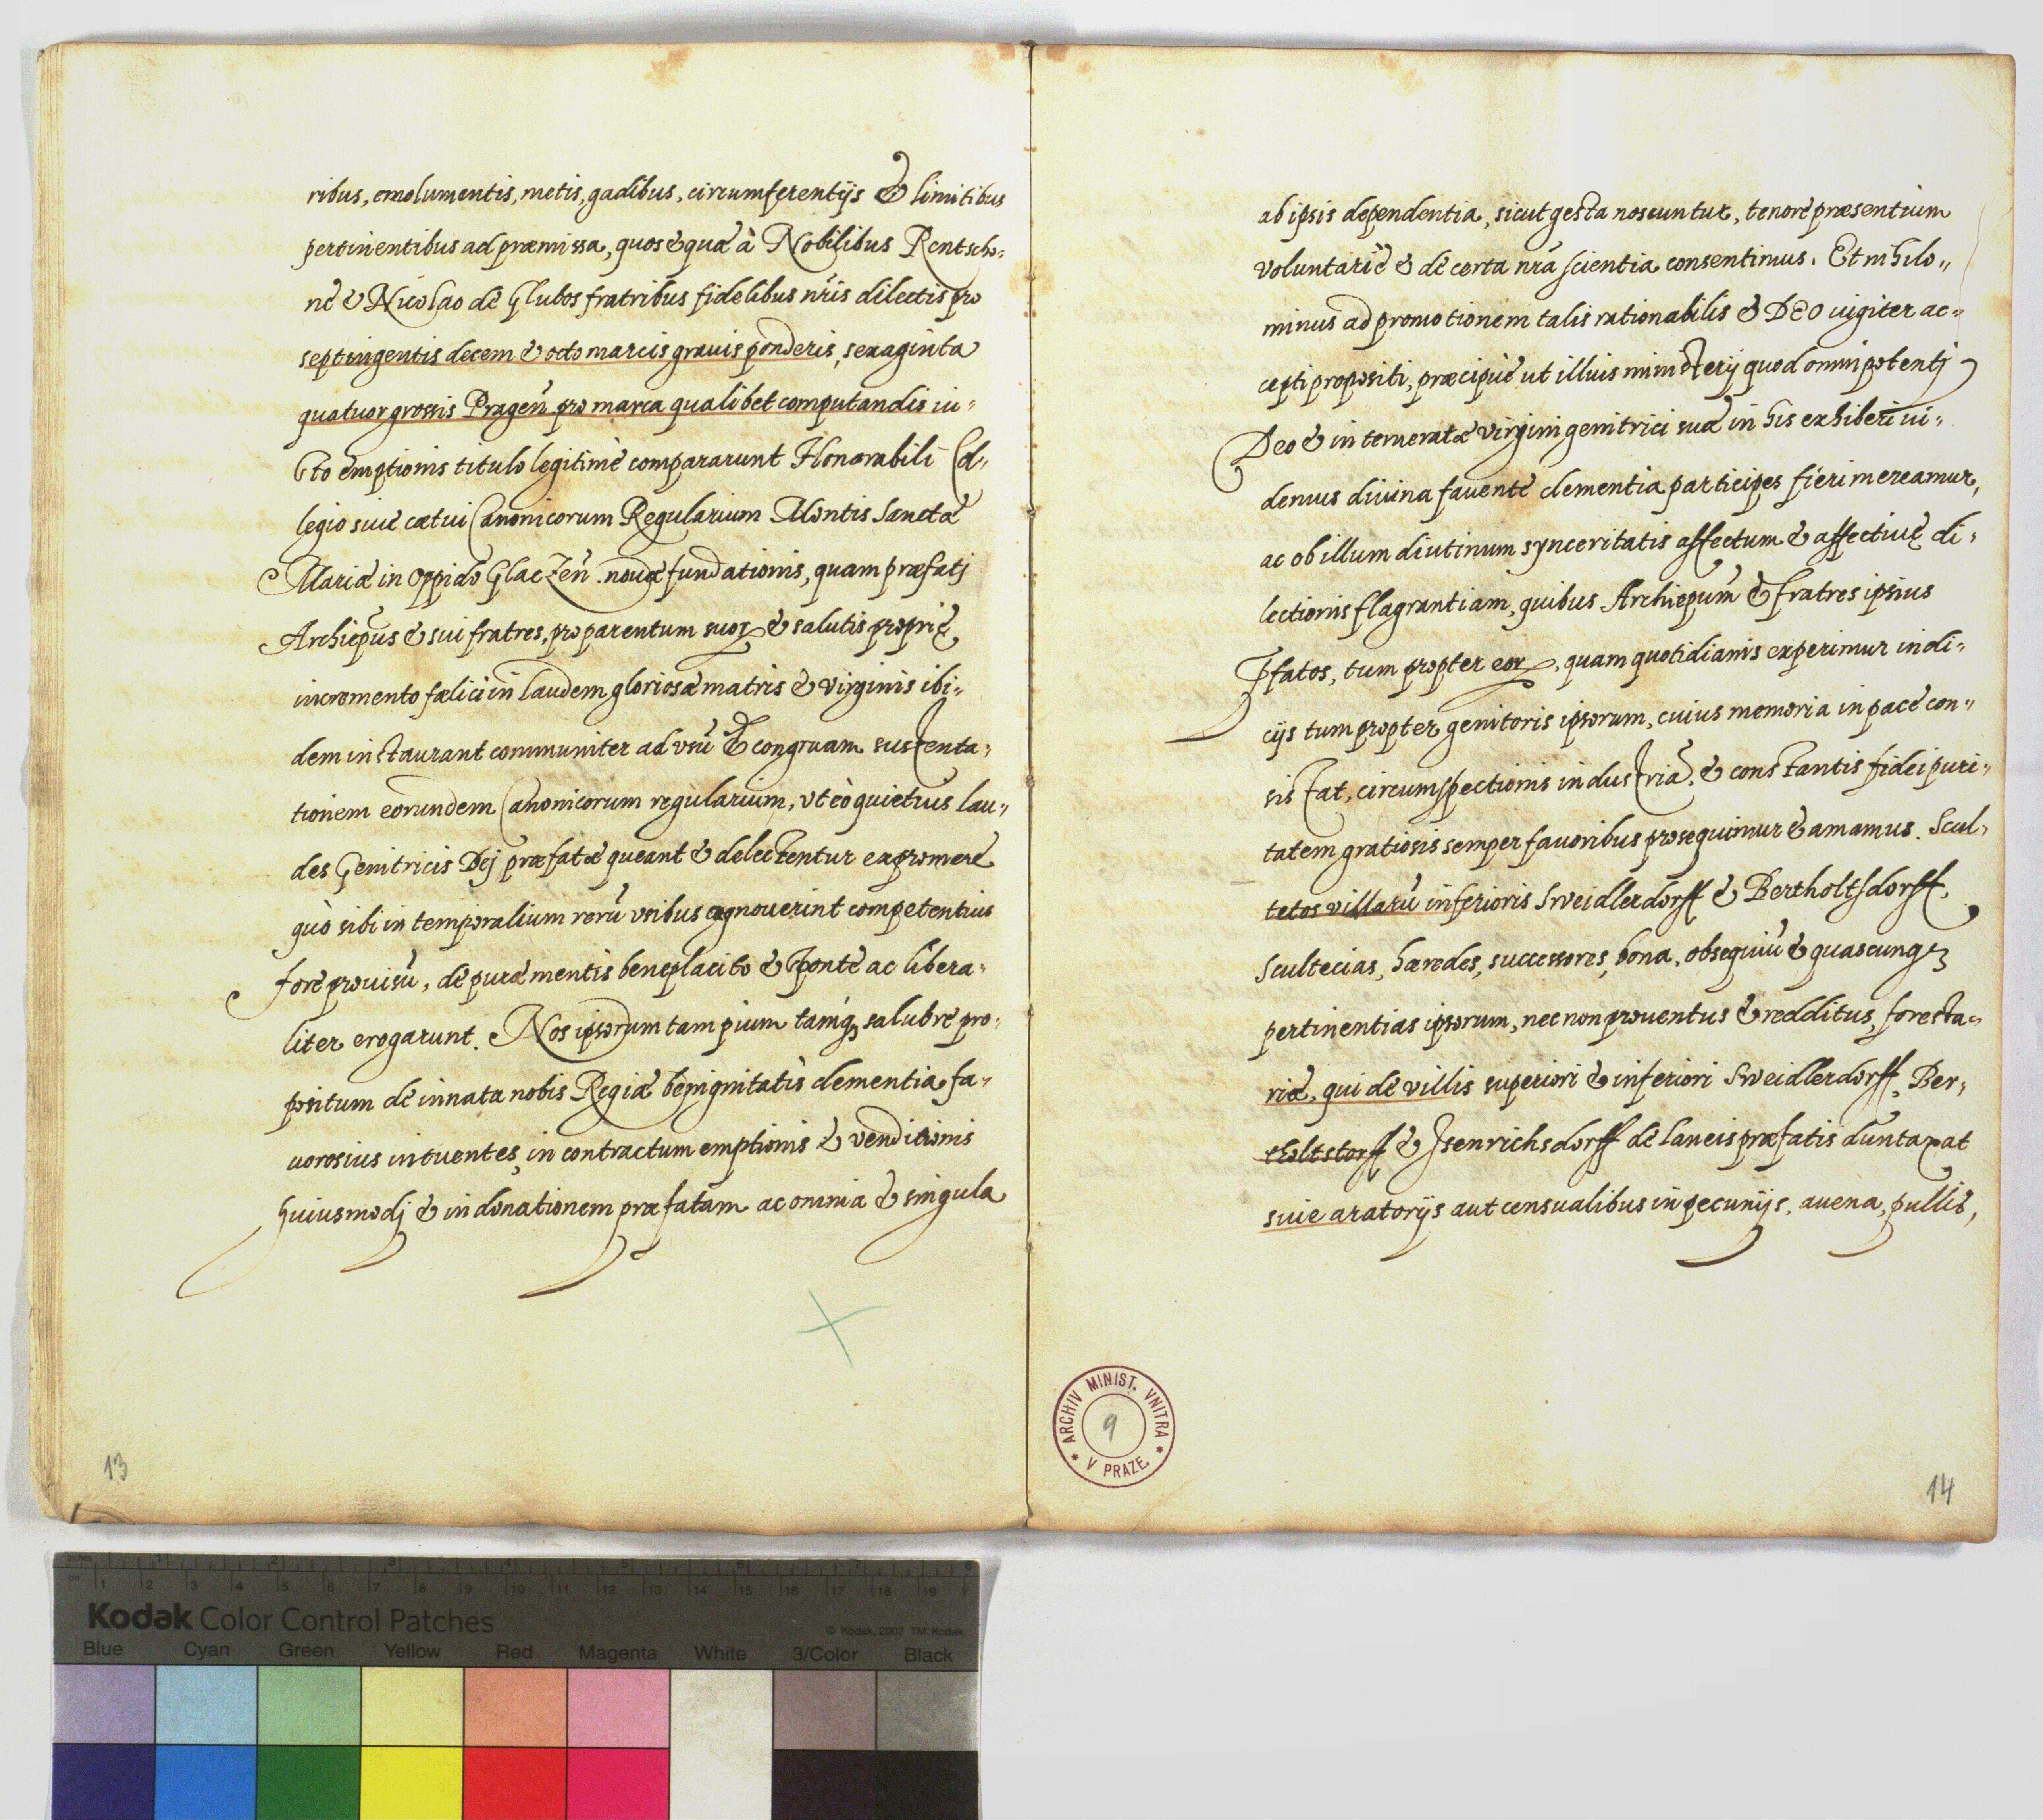 ribus, emolumentis, metis, gadibus, circumferentijs & limitibus
pertinentibus ad præmissa, quos & quæ à Nobilibus Rentscho-
ne & Nicolao de Glubos fratribus fidelibus nr̃is dilectis pro
septingentis decem & octo marcis grauis ponderis, sexaginta
quatuor grossis Pragen̄ pro marca qualibet computandis iu-
sto emptionis titulo legitimè compararunt Honorabili Col-
legio siue cœtui Canonicorum Regularium Montis Sanctæ
Mariæ in Oppido Glaczen̄ nouæ fundationis, quam præfatj
Archiepūs & sui fratres, pro parentum suoꝝ & salutis proprię
incremento fælici in laudem gloriosæ matris & virginis ibi-
dem instaurant communiter ad vsū & congruam sustenta-
tionem eorundem Canonicorum regularium, vt eò quietius lau-
des Genitricis Dej præfatæ queant & delectentur expromere
quò sibi in temporalium rerū vsibus cognouerint competentius
fore prouisū, de puræ mentis beneplacito & sponte ac libera-
liter erogarunt. Nos ipsorum tam pium tamqꝫ salubre pro-
positum de innata nobis Regiæ benignitatis clementia fa-
uorosius intuentes, in contractum emptionis & venditionis
huiusmodj & in donationem præfatam ac omnia & singula
13
ab ipsis dependentia, sicut gesta noscuntur, tenore præsentium
voluntariè & de certa nr̃a scientia consentimus. Et nihilo-
minus ad promotionem talis rationabilis & Deo iugiter ac-
cepti propositi, præcipuè ut illius ministerij quod omnipotentj
Deo & intemeratæ virgini genitrici suæ in his exhiberi ui-
demus diuina fauente clementia participes fieri mereamur,
ac ob illum diutinum synceritatis affectum & affectiuę di-
lectionis flagrantiam, quibus Archiepūm & fratres ipsius
Pfatos, tum propter eoꝝ, quam quotidianis experimur indi-
cijs tum propter genitoris ipsorum, cuius memoria in pace con-
sistat, circumspectionis industriā, & constantis fidei puri-
tatem gratiosis semper fauoribus prosequimur & amamus. Scul-
tetos villarū inferioris Sweidlerdorff & Bertholtsdorff,
Scultecias, hæredes, successores, bona, obsequiū & quascunqꝫ
pertinentias ipsorum, nec non prouentus & redditus, foresta-
riæ, qui de villis superiori & inferiori Sweidlerdorff, Ber-
tholtstorff & Isenrichsdorff de laneis præfatis duntaxat
siue aratorijs aut censualibus in pecunijs, auena, pullis,
ARCHIV MINIST. VNITRA
* V PRAZE. *
9
14
Kodak Color Control Patches
© Kodak, 2007 TM: Kodak
Blue Cyan Green Yellow Red Magenta White 3/Color Black